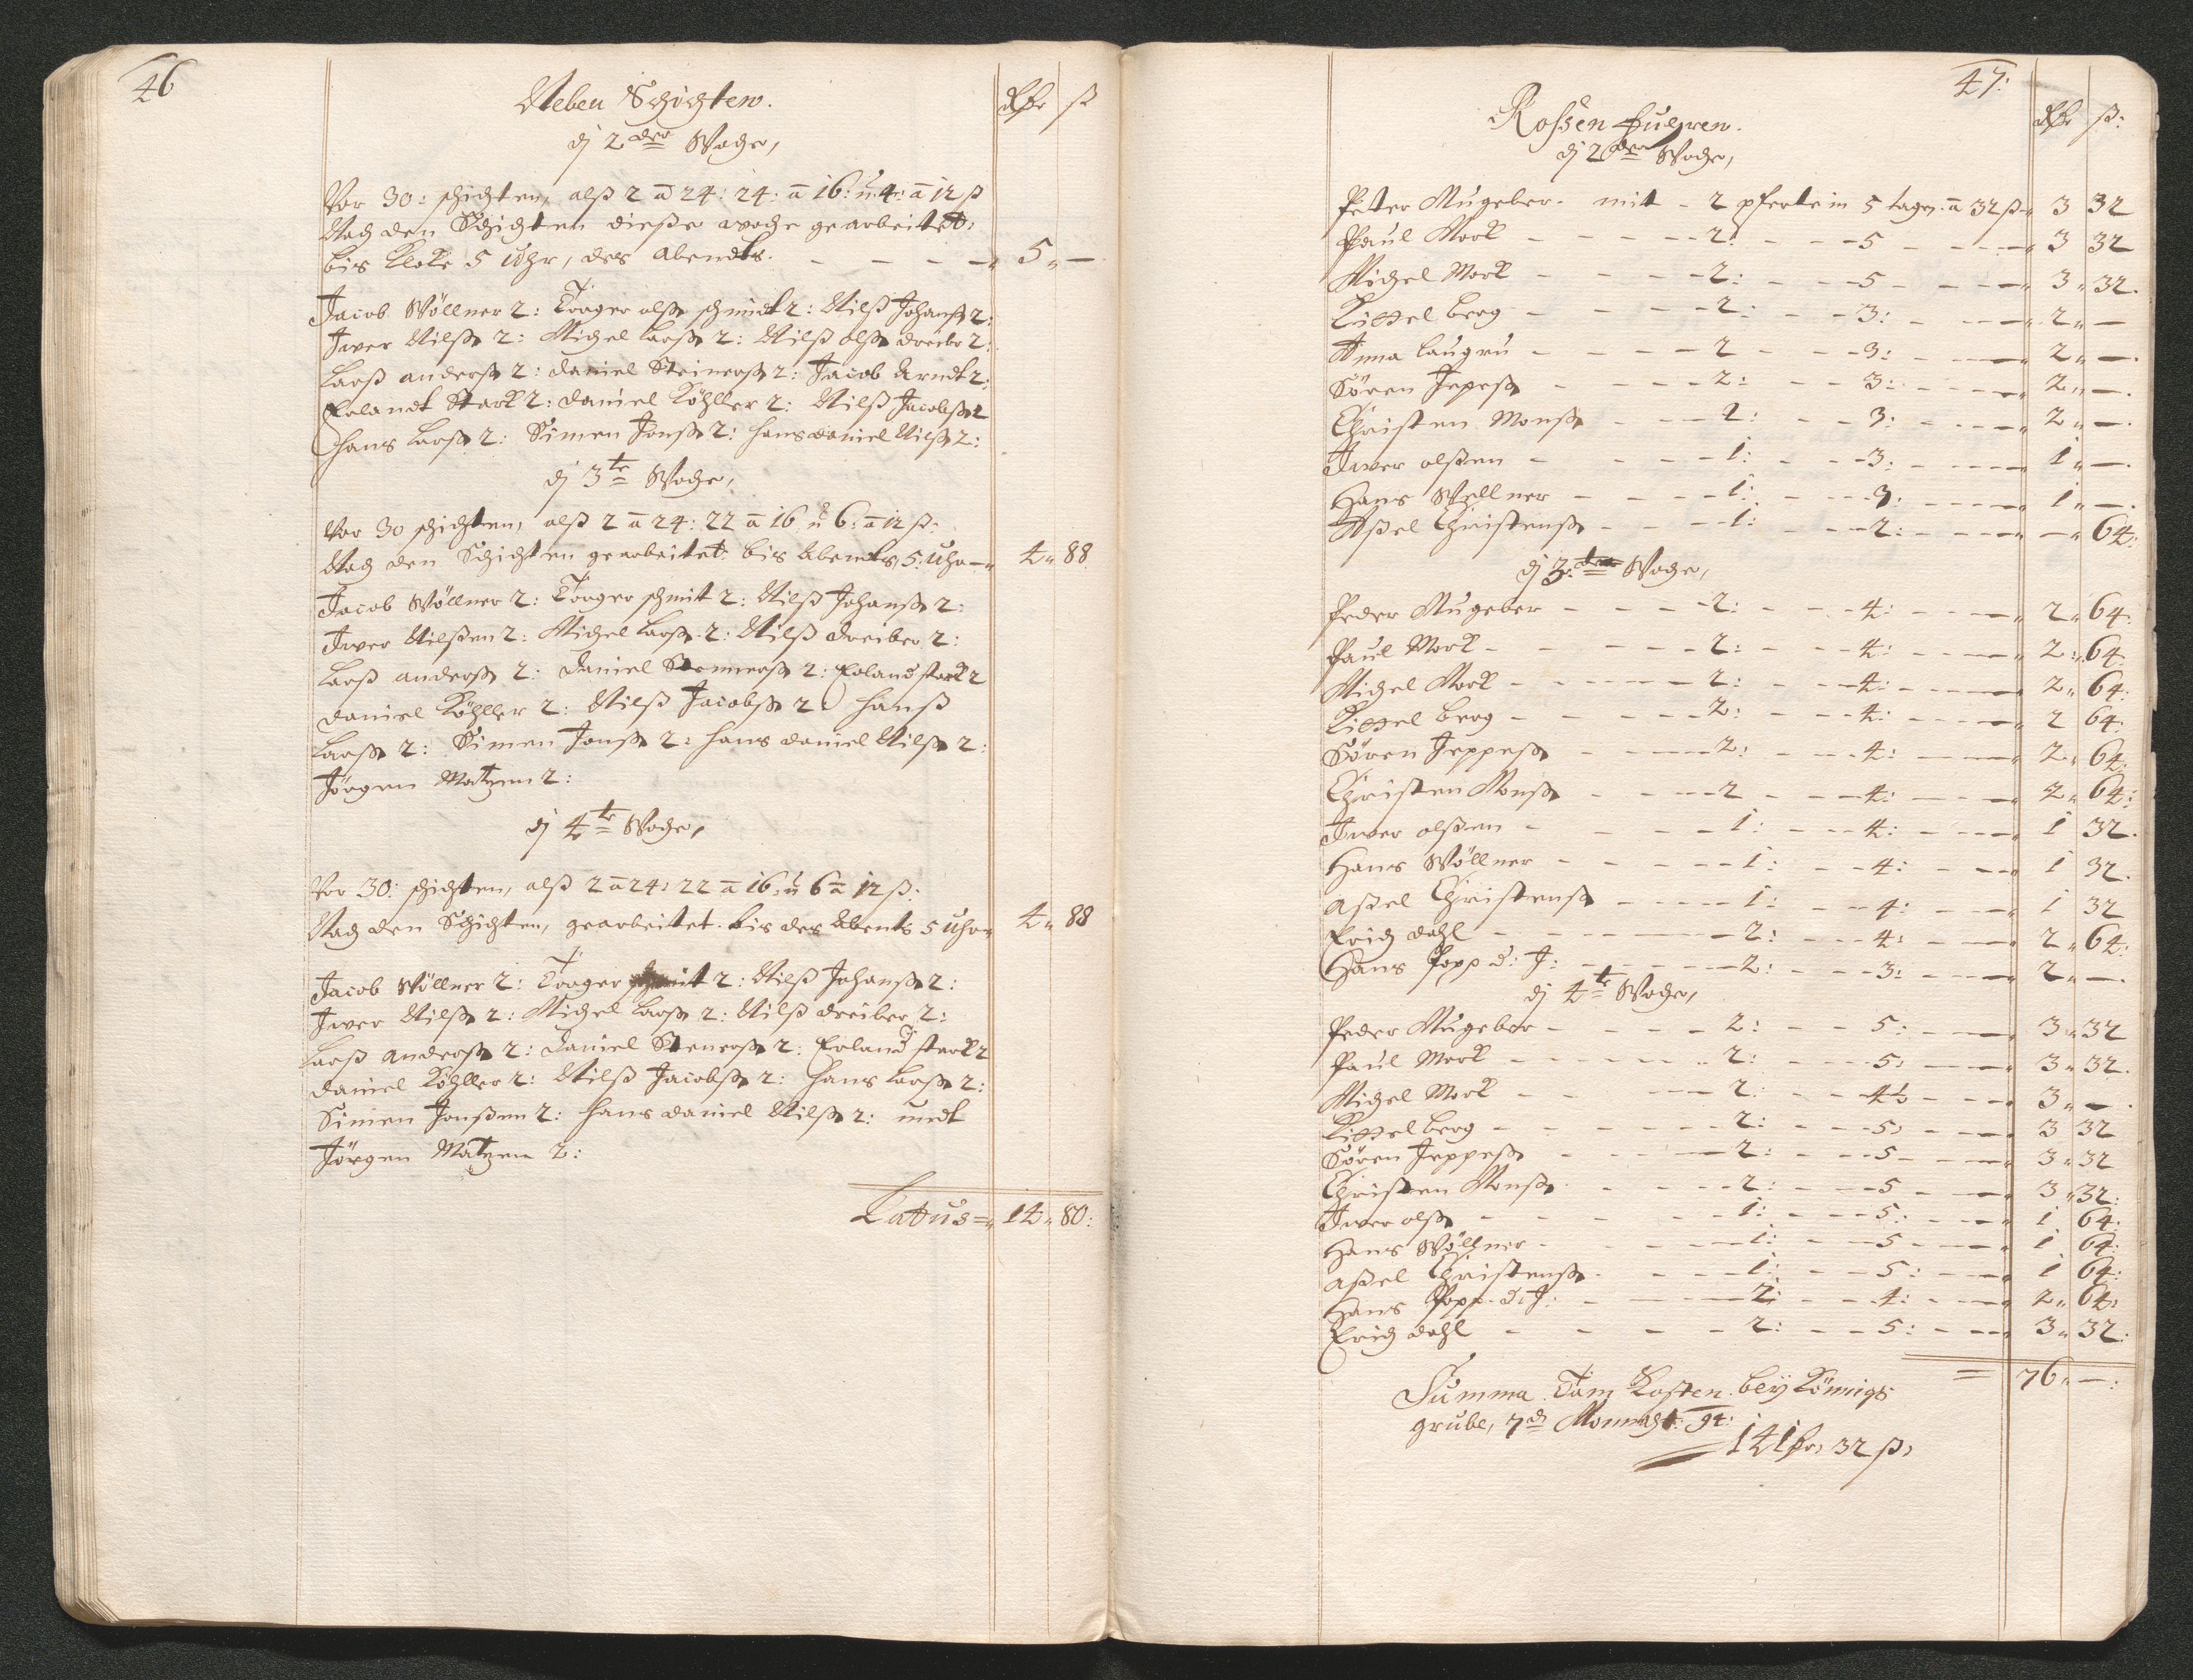 46
Neben Schichten.
dj 2der Woche,
Rdr ß
Vor 30: schichten, alß 2 a 24: 24: a 16: u 4: a 12 ß
Nach den Schichten dieße woche gearbeitet,
bis Klocke 5 Uhr, des Abendts. - - - - 5 " —
Jacob Wöllner 2: Torger olß schmidt 2: Nilß Johanß 2:
Iwer Nilß 2: Michel Larß 2: Nilß olß dreiber 2:
Larß anderß 2: daniel Steinerß 2: Jacob Arndt 2:
Erlandt Stark 2: daniel Köhller 2: Nilß Jacobß 2
Hans Larß 2: Simen Jonß 2: Hans daniel Nilß 2:
dj 3te Woche,
Vor 30 schichten, alß 2 a 24: 22 a 16 u 6: a 12 ß:
Nach den Schichten gearbeitet bis Abendts 5: Uhr — 4 " 88
Jacob Wöllner 2: Torger schmit 2: Nilß Johanß 2:
Iwer Nilßen 2: Michel Larß 2: Nilß dreiber 2:
Larß anderß 2: daniel Stennerß 2: Erland stark 2
daniel Köhller 2: Nilß Jacobß 2: Hanß
Larß 2: Simen Jonß 2: Hans daniel Nilß 2:
Jörgen Matzen 2:
dj 4te Woche,
Vor 30: schichten, alß 2 a 24: 22 a 16: u 6 a 12 ß:
Nach den Schichten, gearbeitet bis des Abents 5 Uhr 4 " 88
Jacob Wöllner 2: Torger schmit 2: Nilß Johanß 2:
Iwer Nilß 2: Michel Larß 2: Nilß dreiber 2:
Larß anderß 2: daniel Stenerß 2: Erland stark 2
daniel Köhller 2: Nilß Jacobß 2: Hans Larß 2:
Simen Jonßen 2: Hans daniel Nilß 2: undt
Jörgen Matzen 2:
Latus = 14 " 80:
47:
Roßen fuhren.
dj 2der Woche,
Rdr ß:
Petter Nugeber. mit - 2 pferde in 5 tagen a 32 ß 3 32
Paul Mork - - - - 2: - - 5 - - - 3 32
Michel Mork - - - - 2: - - 5 - - - 3 " 32.
Kittel berg - - - - 2: - - 3: - - - 2 " —
Anna laugru - - - - 2 - - 3: - - - 2 " —.
Sören Jepeß - - - - 2: - - 3: - - - 2 " —.
Christen Monß - - - 2: - - 3: - - - 2 " —.
Iwer olßen - - - - 1: - - 3: - - - 1 " —.
Hans Wellner - - - - 1: - - 3: - - - 1 " —.
Aßel Christenß - - - 1: - - 2: - - - — " 64:
dj 3:te Woche,
Peder Nugeber - - - - 2: - - 4: - - - 2 " 64:
Paul Mork - - - - 2: - - 4: - - - 2 " 64
Michel Mork - - - - 2: - - 4: - - - 2 " 64:
Kittel berg - - - - 2: - - 4: - - - 2 64:
Sören Jeppeß - - - 2: - - 4: - - - 2 " 64:
Christen Monß - - - 2 - - 4: - - - 2 " 64:
Iwer olßen - - - - 1: - - 4: - - - 1 32.
Hans Wöllner - - - - 1: - - 4: - - - 1 32.
aßel Christenß - - - 1: - - 4: - - - 1 32
Erich dahl - - - - 2: - - 4: - - - 2 " 64:
Hans Popp d: J: - - - 2: - - 3: - - - 2 " —.
dj 4te Woche,
Peder Nugeber - - - - 2: - - 5: - - - 3 " 32
Paul Mork - - - - 2: - - 5: - - - 3 " 32.
Michel Mork - - - - 2: - - 4½ - - - 3 " —.
Kittel berg - - - - 2: - - 5: - - - 3 32
Sören Jeppeß - - - 2: - - 5 - - - 3 " 32
Christen Monß - - - 2: - - 5 - - - 3 " 32:
Iwer olß - - - - 1: - - 5: - - - 1 64:
Hans Wöllner - - - - 1: - - 5 - - - 1 64:
aßel Christenß - - - 1: - - 5: - - - 1 64:
Hans Popp d: J: - - - 2: - - 4: - - - 2 " 64:
Erich dahl - - - - 2: - - 5: - - - 3 " 32:
= 76 " —:
Summa Tam Kosten beÿ Königs
grube, 7d Monacht: 94:
141 Rdr 32 ß,